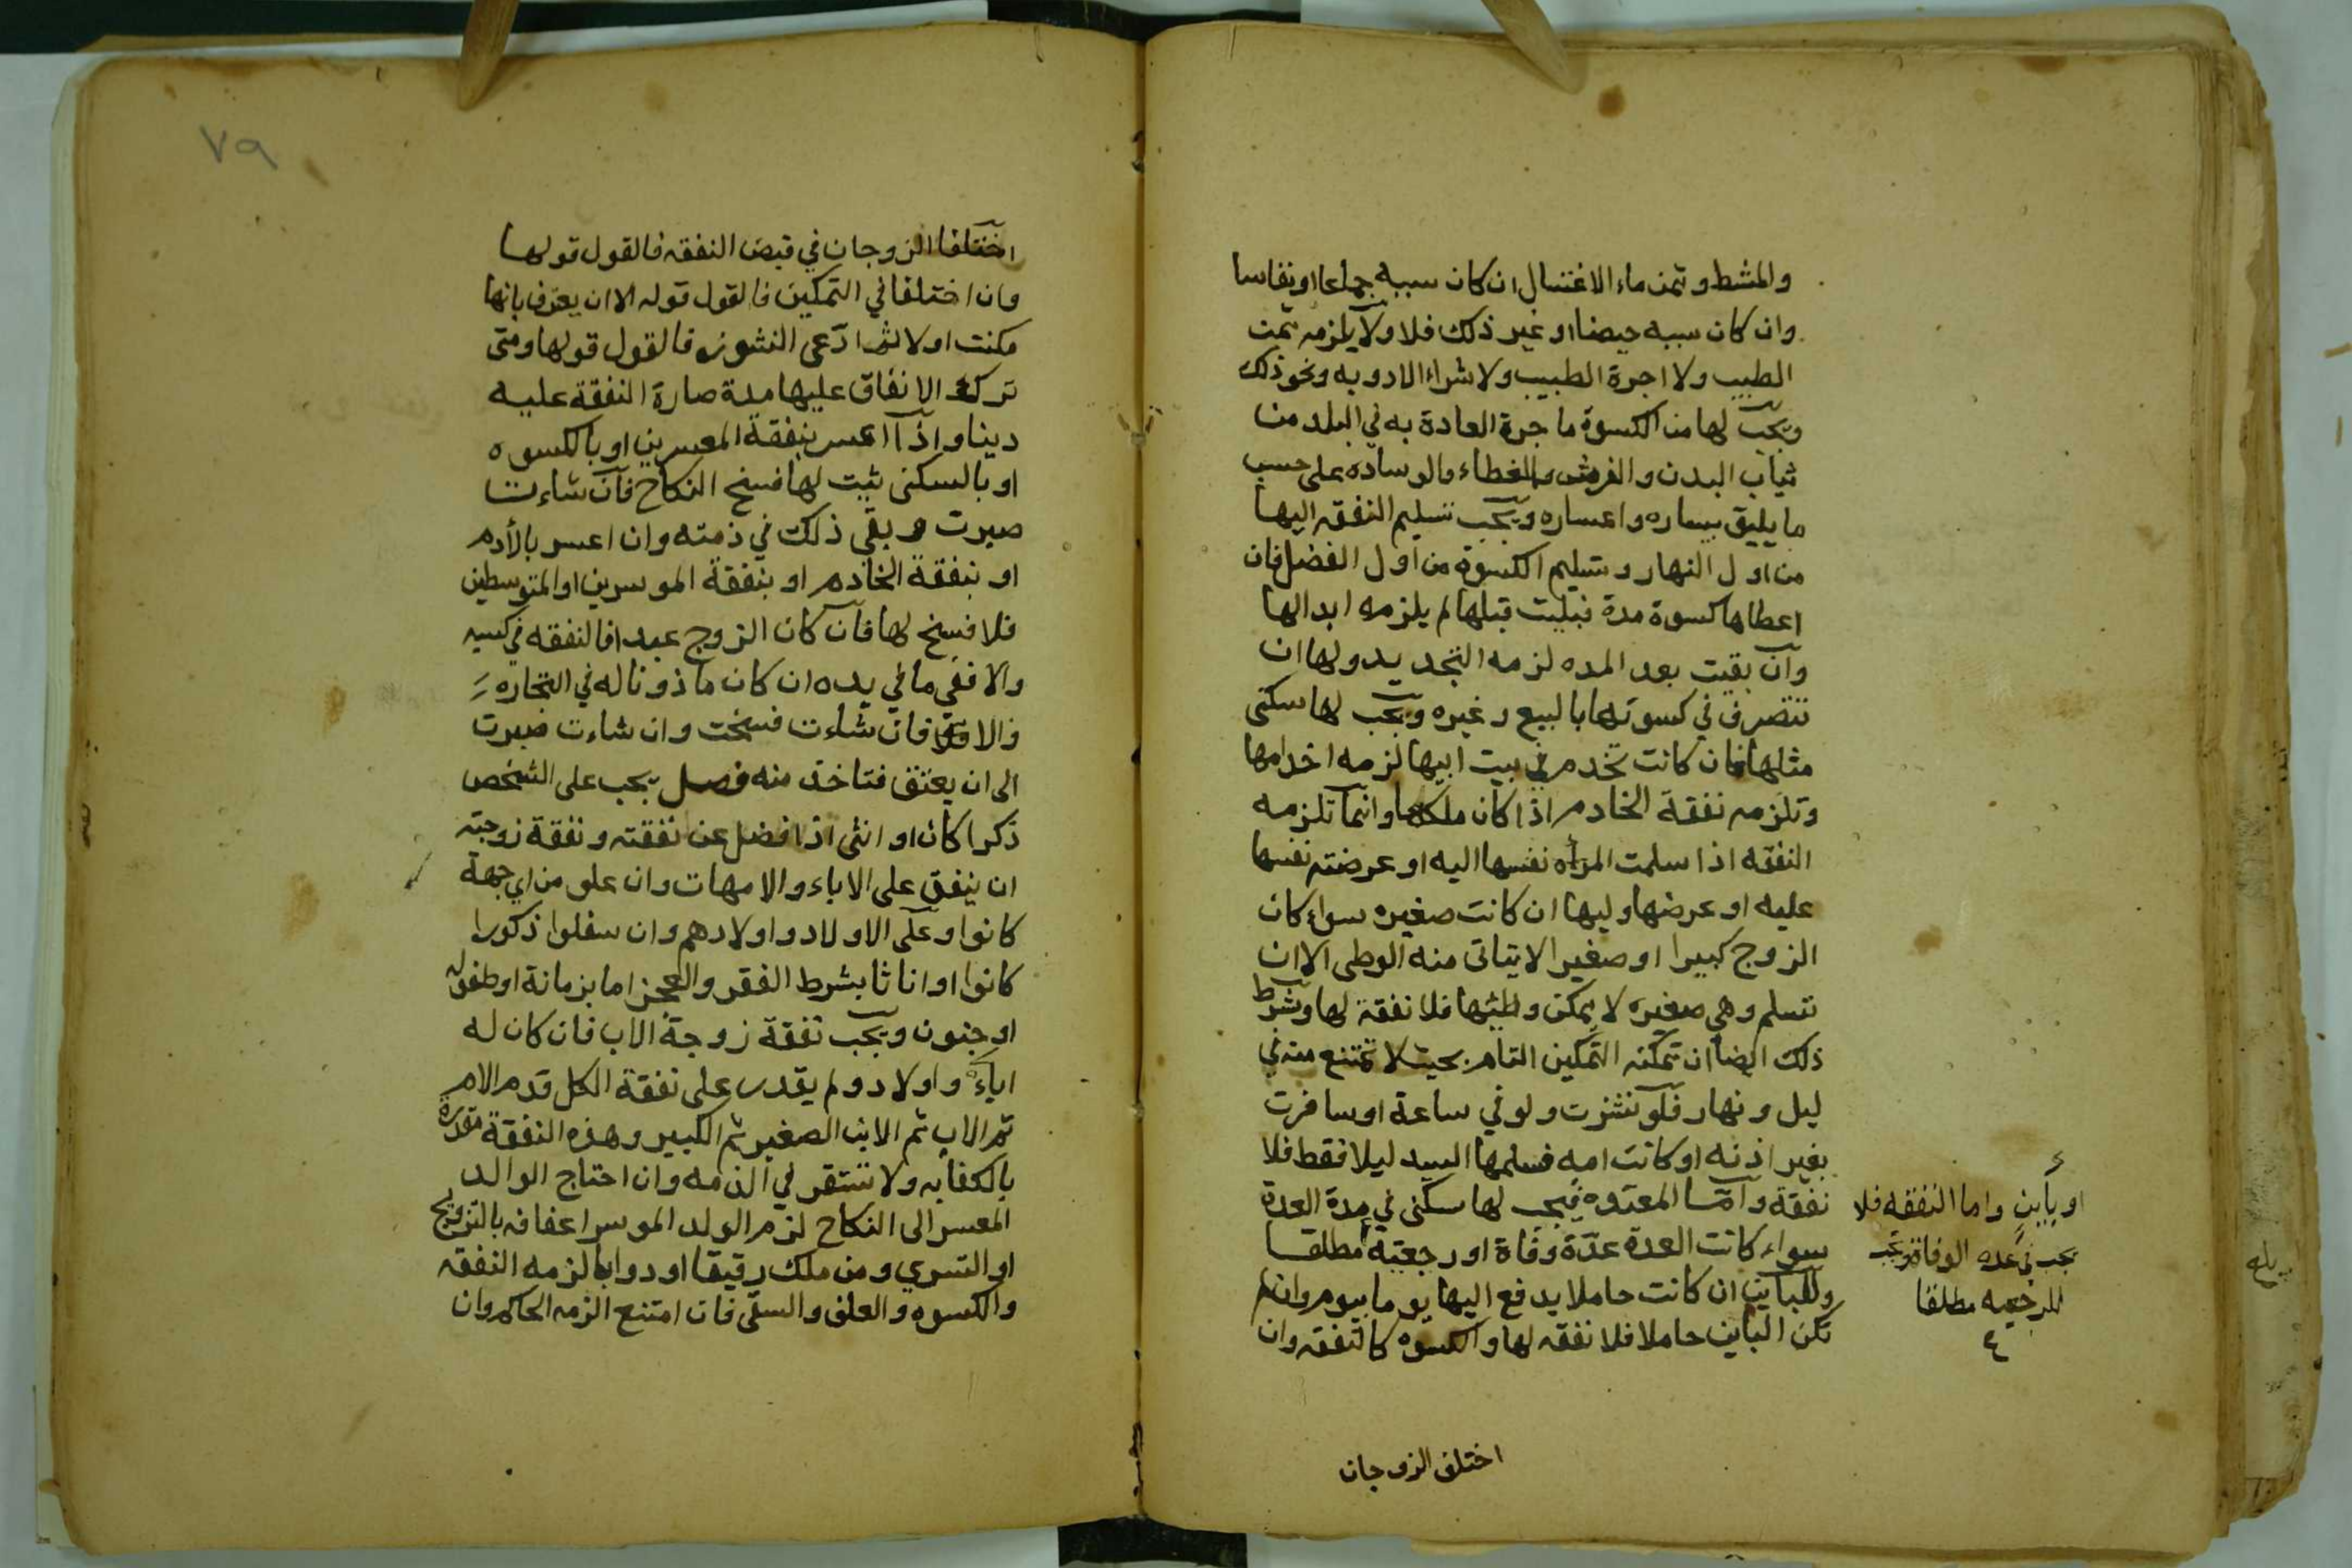 والمشط وثمن ماء الاغتسال ان كان سببه جماعا او نفاسا
وان كان سببه حيضا او غير ذلك فلا ولا يلزمه ثمن
الطيب ولا اجرة الطبيب ولا شراء الادويه ونحو ذلك
ويجب لها من الكسوة ما جرة العادة به في البلد من
ثياب البدن والفرش والغطاء والوساده على حسب
ما يليق بيساره واعساره ويجب تسليم النفقه اليها
من اول النهار وتسليم الكسوة من اول الفصل فان
اعطاها كسوة مدة فبليت قبلها لم يلزمه ابدالها
وان بقيت بعد المده لزمه التجديد ولها ان
تتصرف في كسوتها بالبيع وغيره ويجب لها سكنى
مثلها فان كانت تخدم في بيت ابيها لزمه اخدامها
وتلزمه نفقة الخادم اذا كان ملكها وانما تلزمه
النفقه اذا سلمت المرأه نفسها اليه او عرضته نفسها
عليه او عرضها وليها ان كانت صغيره سواء كان
الزوج كبيرا او صغيرا لا يتاتى منه الوطى الا ان
تتسلم وهي صغيره لا يمكن وطئها فلا نفقة لها وشرط
ذلك ايضا ان تمكنه التمكين التام بحيث لا تمتنع منه في
ليل ونهار فلو نشزت ولو في ساعة او سافرت
بغير اذنه او كانت امه فسلمها السيد ليلا فقط فلا
نفقة واما المعتده فيجب لها سكنى في مدة العدة
سواء كانت العدة عدّة وفاة او رجعية مطلقا
وللباين ان كانت حاملا يدفع اليها يوما بيوم وان لم
تكن الباين حاملا فلا نفقه لها والكسوه كالنفقه وان
او باين واما النفقه فلا
تجب في عده الوفاة وتجب
للرجعيه مطلقا
اختلف الزوجان
٧٩
اختلفا الزوجان في قبض النفقه فالقول قولها
وان اختلفا في التمكين فالقول قوله الا ان يعترف بانها
مكنت اولا ثم ادّعى النشوز فالقول قولها ومتى
ترك الانفاق عليها مدة صارة النفقة عليه
دينا واذا اعسر بنفقة المعسرين او بالكسوه
او بالسكنى ثبت لها فسخ النكاح فان شاءت
صبرت وبقى ذلك في ذمته وان اعسر بالأدم
او بنفقة الخادم او بنفقة الموسرين او المتوسطين
فلا فسخ لها فان كان الزوج عبدا فالنفقه في كسبه
والا ففي ما في يده ان كان ماذونا له في التجاره
والا فان شاءت فسخت وان شاءت صبرت
الى ان يعتق فتاخذ منه فصل يجب على الشخص
ذكرا كان او انثى اذا فضل عن نفقته ونفقة زوجته
ان ينفق على الاباء والامهات وان علو من اي جهة
كانوا وعلى الاولاد واولادهم وان سفلوا ذكورا
كانوا او اناثا بشرط الفقر والعجز اما بزمانة او طفوليه
او جنون ويجب نفقة زوجة الاب فان كان له
اباء واولاد ولم يقدر على نفقة الكل قدم الام
ثم الاب ثم الابن الصغير ثم الكبير وهذه النفقة مقدرة
بالكفايه ولا تستقر في الذمه وان احتاج الوالد
المعسر الى النكاح لزم الولد الموسر اعفافه بالتزويج
او التسري ومن ملك رقيقا او دوابا لزمه النفقه
والكسوه والعلف والسقى فان امتنع الزمه الحاكم وان